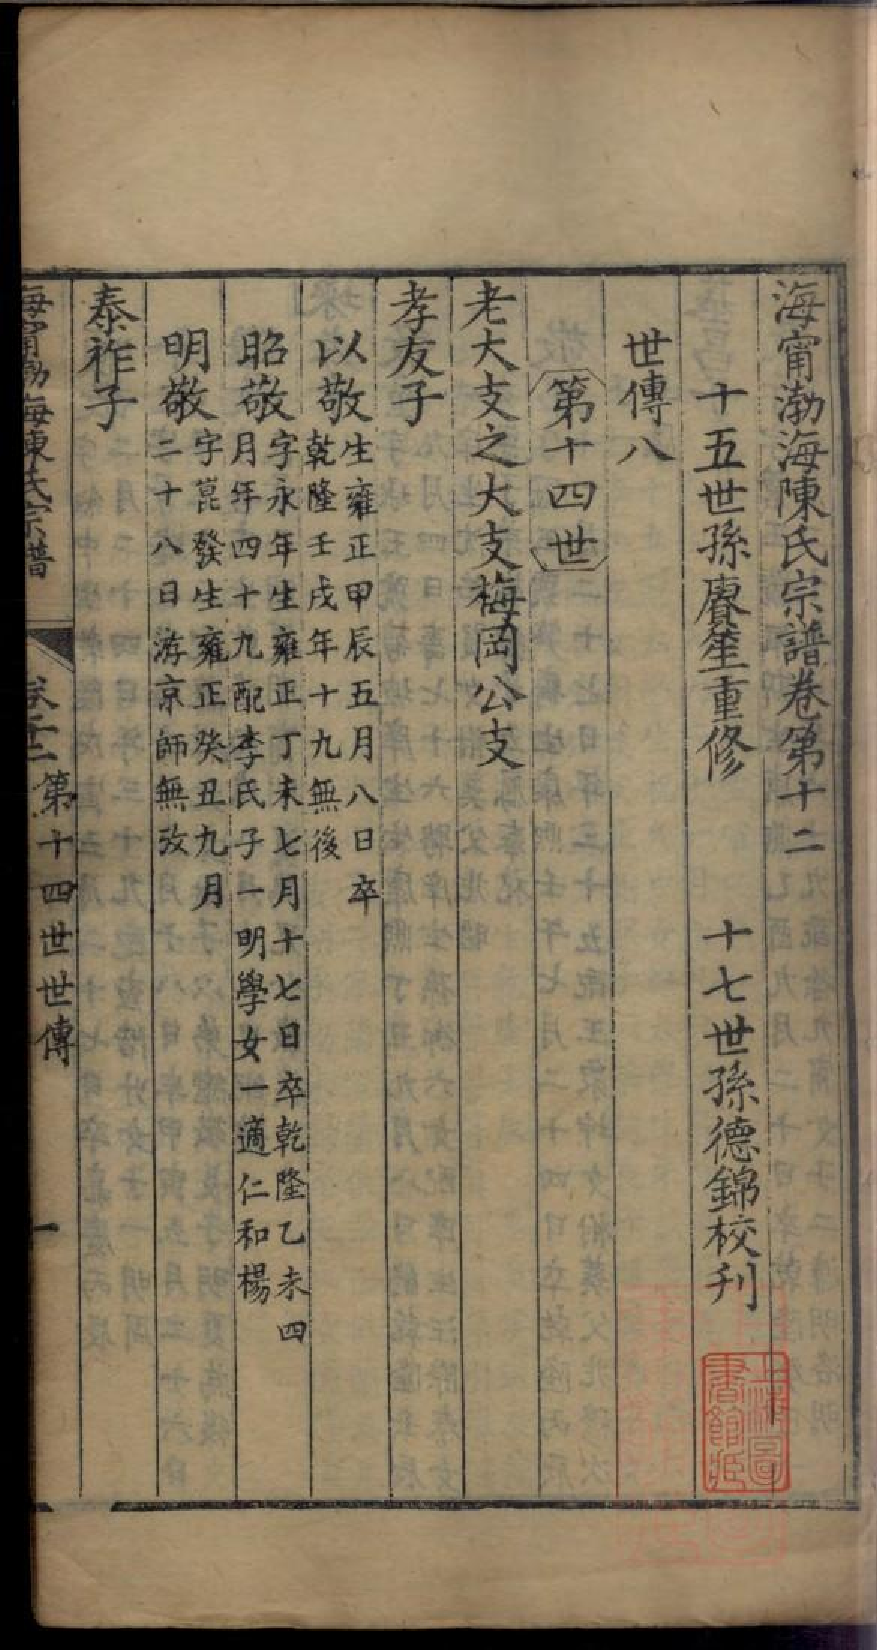 海甯渤海陳氏宗譜卷第十二
十五世孫賡笙重修　十七世孫德錦校刋
世傳八
第十四世
老大支之大支梅岡公支
孝友子
以敬
生雍正甲辰五月八日卒
乾隆壬戌年十九無後
昭敬
字永年生雍正丁未七月十七日卒乾隆乙未四
月年四十九配李氏子一明學女一適仁和楊
明敬
字崑發生雍正癸丑九月
二十八日游京師無攷
泰祚子
海甯渤海陳氏宗譜
卷十二
第十四世世傳
一
上海圖書館藏